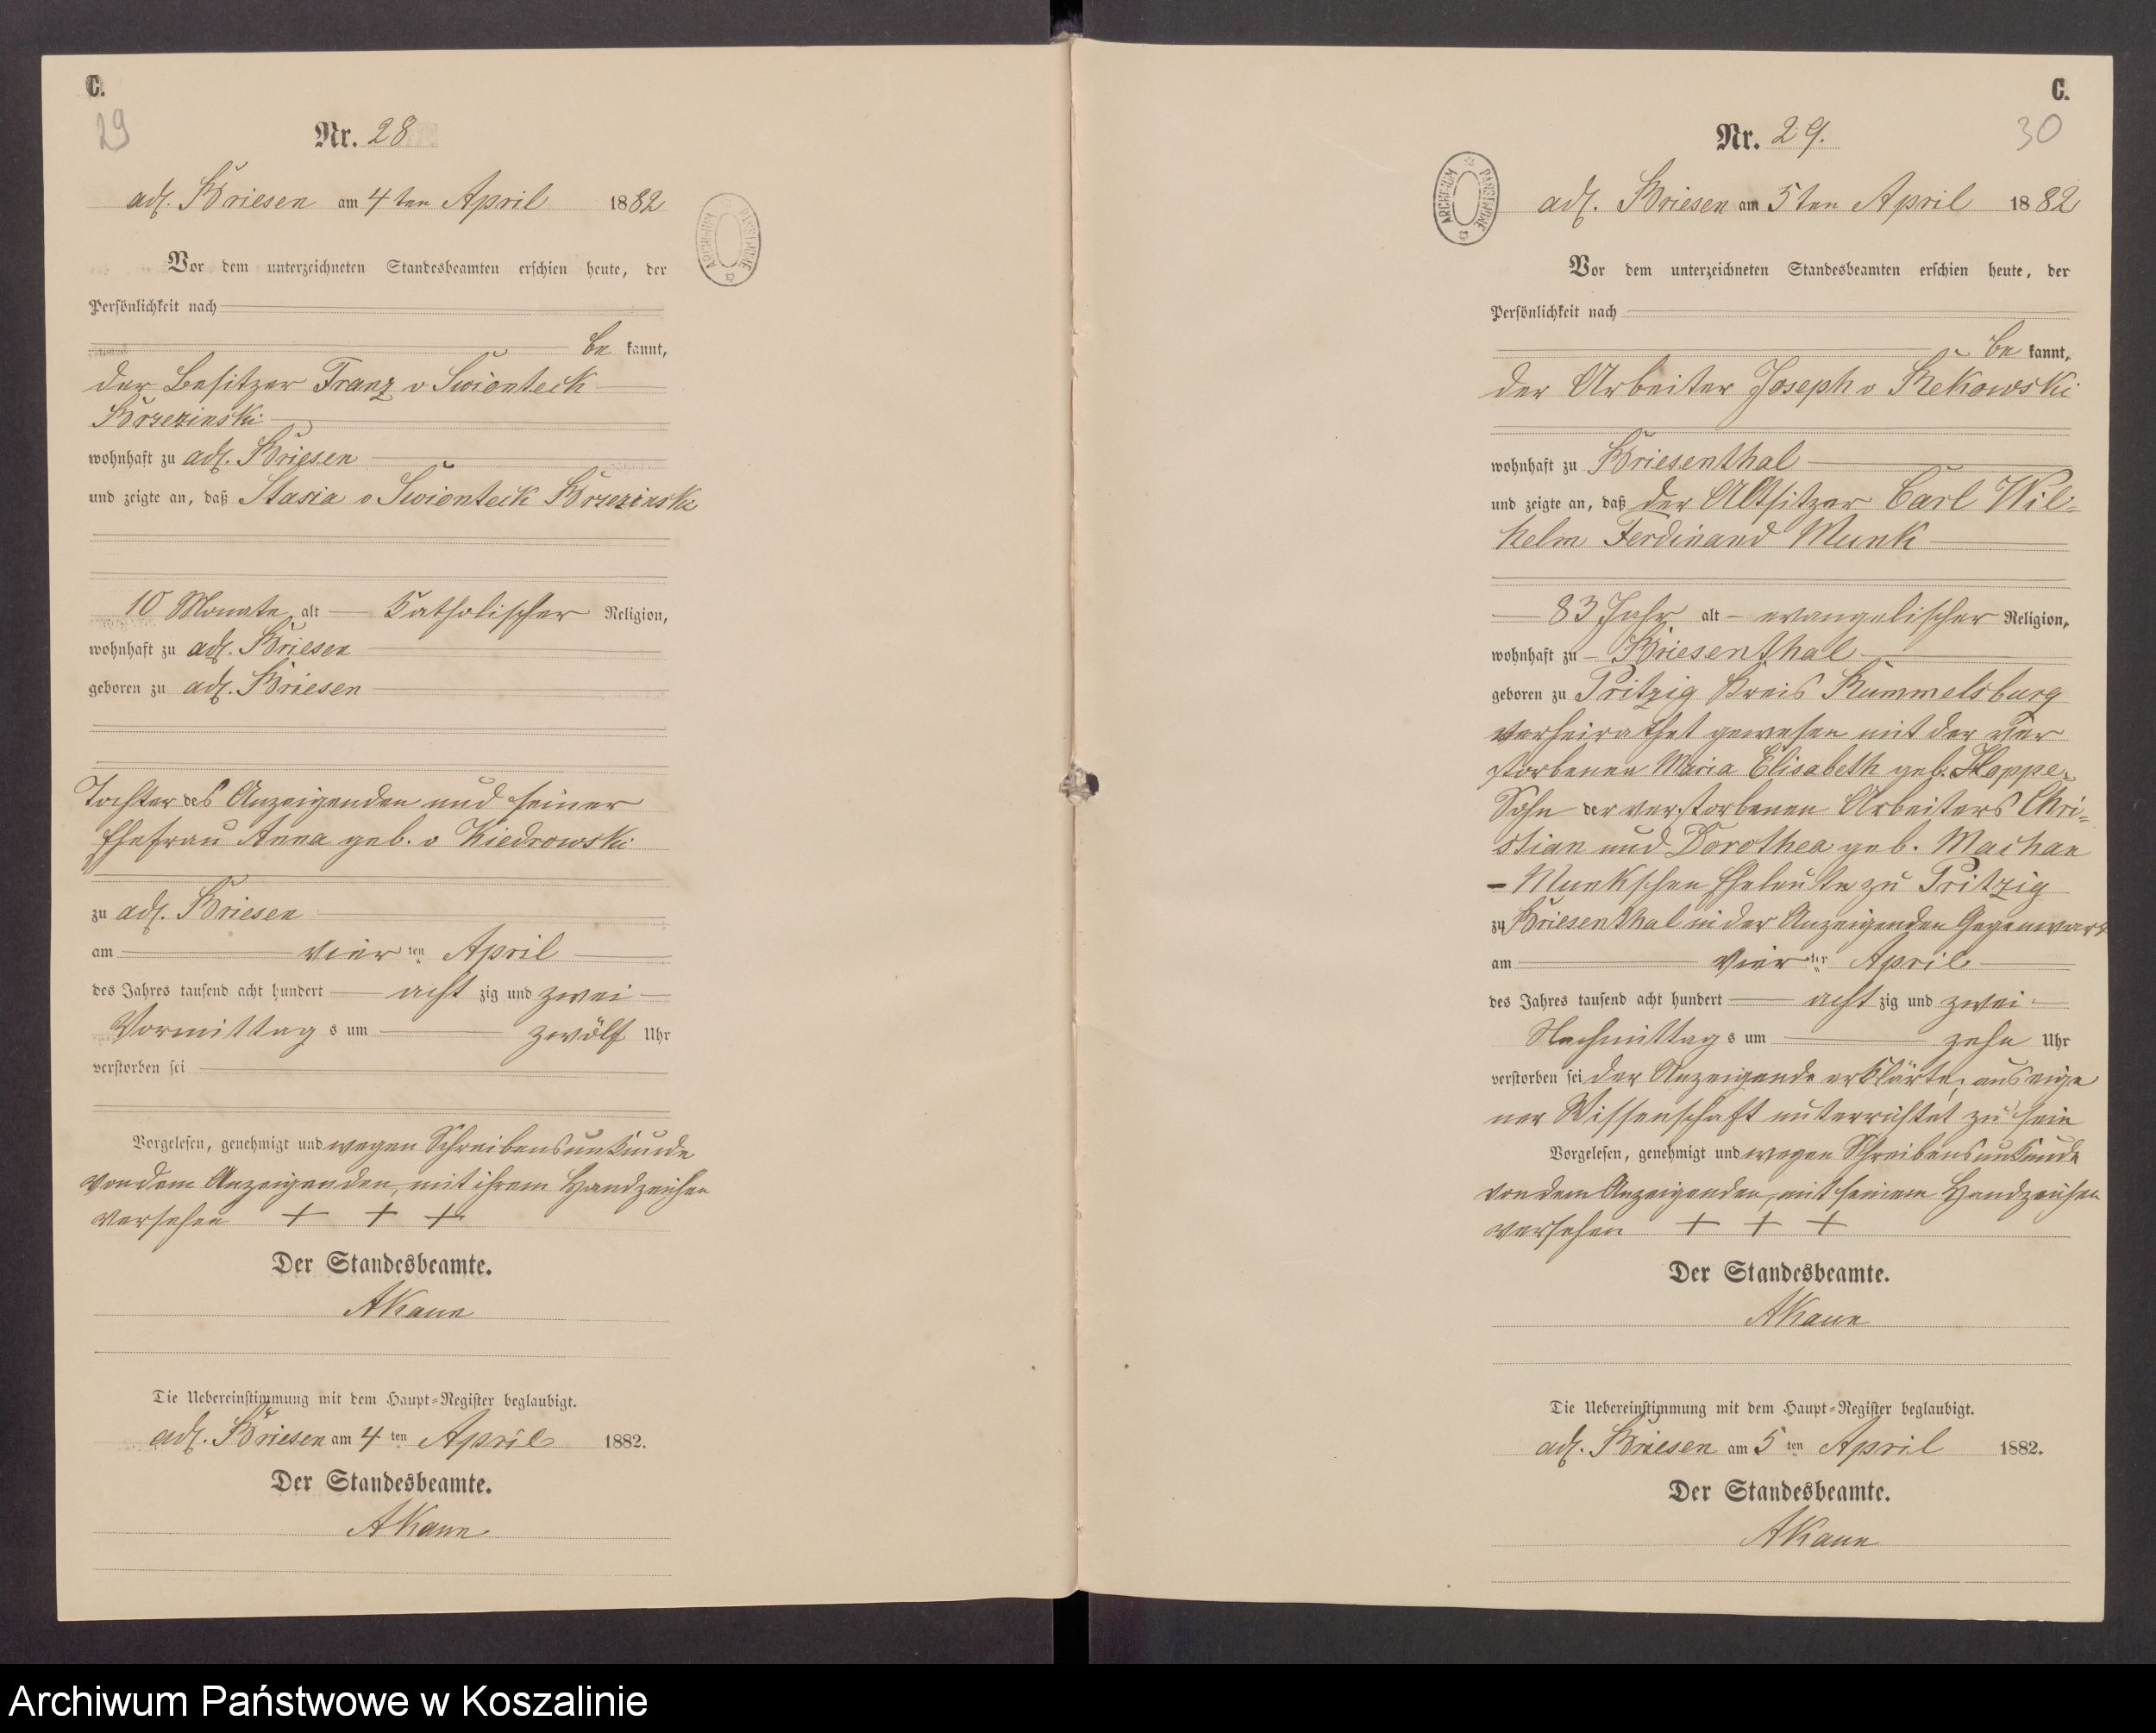 C.
29
Nr. 28
adl. Briesen am 4ten April 1882
ARCHIWUM PAŃSTWOWE
Vor dem unterzeichneten Standesbeamten erschien heute, der
Persönlichkeit nach
be kannt,
der Besitzer Franz v Swionteck
Brzezinski
wohnhaft zu adl. Briesen
und zeigte an, daß Stasia v Swionteck Brzezinski
10 Monate alt katholischer Religion,
wohnhaft zu adl. Briesen
geboren zu adl. Briesen
Tochter des Anzeigenden und seiner
Ehefrau Anna geb. v Kiedrowski
zu adl. Briesen
am vier ten April
des Jahres tausend acht hundert acht zig und zwei
Vormittag s um zwölf Uhr
verstorben sei
Vorgelesen, genehmigt und wegen Schreibensunkunde
von dem Anzeigenden, mit ihrem Handzeichen
versehen + + +
Der Standesbeamte.
AKaun
Die Uebereinstimmung mit dem Haupt=Register beglaubigt.
adl. Briesen am 4 ten April 1882.
Der Standesbeamte.
AKaun
C.
30
Nr. 29.
ARCHIWUM PAŃSTWOWE
adl. Briesen am 5ten April 1882
Vor dem unterzeichneten Standesbeamten erschien heute, der
Persönlichkeit nach
be kannt,
der Arbeiter Joseph v Rekowski
wohnhaft zu Briesenthal
und zeigte an, daß der Altsitzer Carl Wil=
helm Ferdinand Munk
83 Jahr alt – evangelischer Religion,
wohnhaft zu – Briesenthal
geboren zu Pritzig Kreis Rummelsburg
verheirathet gewesen mit der ver
storbenen Maria Elisabeth geb. Hoppe,
Sohn der verstorbenen Arbeiters Chri=
stian und Dorothea geb. Machan
– Munkschen Eheleute zu Pritzig
zu Briesenthal in der Anzeigenden Gegenwart
am vier ten April
des Jahres tausend acht hundert acht zig und zwei
Nachmittag s um zehn Uhr
verstorben sei der Anzeigende erklärte, aus eige
ner Wissenschaft unterrichtet zu sein
Vorgelesen, genehmigt und wegen Schreibensunkunde
von dem Anzeigenden, mit seinem Handzeichen
versehen + + +
Der Standesbeamte.
AKaun
Die Uebereinstimmung mit dem Haupt=Register beglaubigt.
adl. Briesen am 5 ten April 1882.
Der Standesbeamte.
AKaun
Archiwum Państwowe w Koszalinie